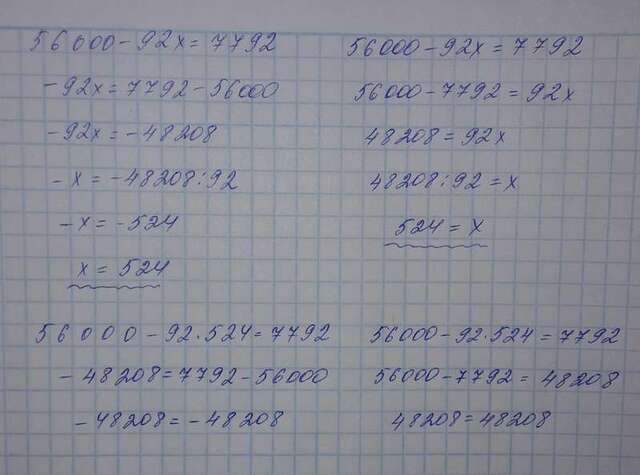 56000-92x=7792
-92x=7792-56000
-92x=-48208
-x=-48208:92
-x=-524
x=524
56000-92x=7792
56000-7792=92x
48208=92x
48208:92=x
524=x
56000-92·524=7792
-48208=7792-56000
-48208=-48208
56000-92·524=7792
56000-7792=48208
48208=48208